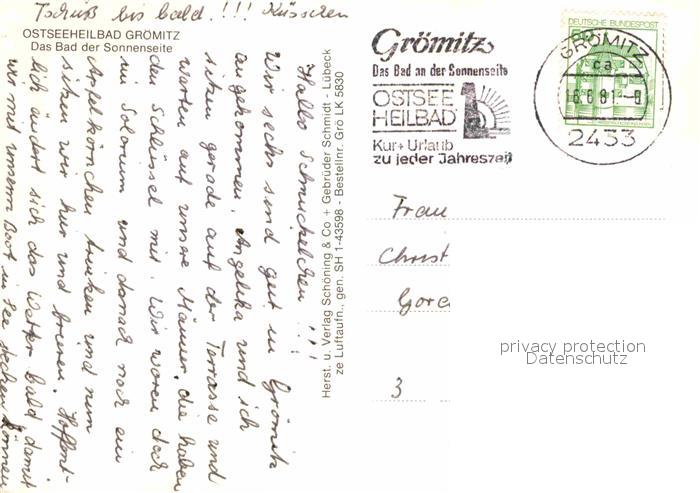 Tschüß bis bald!!! Küsschen
OSTSEEHEILBAD GRÖMITZ
Das Bad der Sonnenseite
Hallo Schnuckelchen!!!
Wir sechs sind gut in Grömitz
angekommen. Angelika und ich
sitzen gerade auf der Terrasse und
warten auf unsere Männer, die haben
den Schlüssel mit. Wir waren doch
im Solarium und danach noch ein
Apfelkörnchen trinken und nun
sitzen wir hier und frieren. Hoffent-
lich ändert sich das Wetter bald damit
wir mit unserm Boot in See stechen können
Herst. u. Verlag Schöning & Co + Gebrüder Schmidt - Lübeck
ze Luftaufn., gen. SH 1-43598 - Bestellnr. Grö LK 5830
Grömitz
Das Bad an der Sonnenseite
OSTSEE
HEILBAD
Kur + Urlaub
zu jeder Jahreszeit
DEUTSCHE BUNDESPOST
GRÖMITZ
ca
16.6.81-8
2433
Frau
Christ
3
privacy protection
Datenschutz